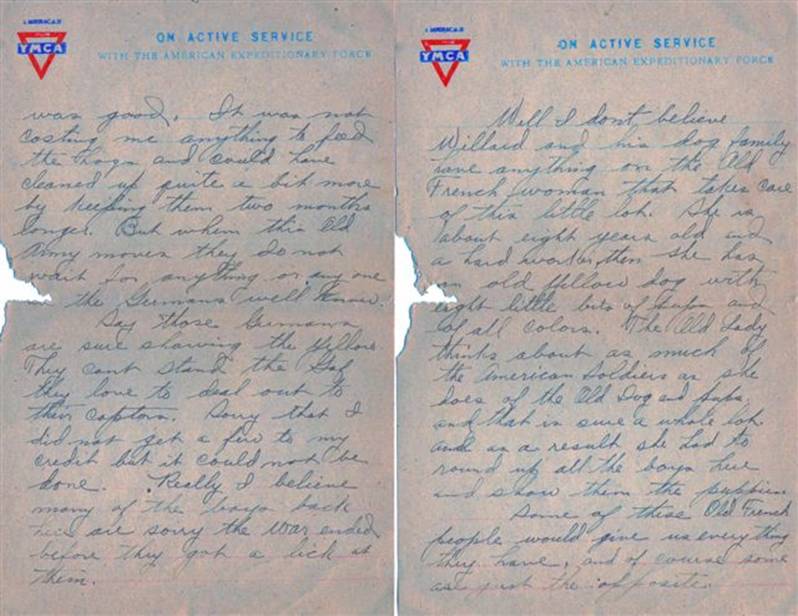 AMERICAN
YMCA
ON ACTIVE SERVICE
WITH THE AMERICAN EXPEDITIONARY FORCE
was good. It was not
costing me anything to feed
the hogs and could have
cleaned up quite a bit more
by keeping them two months
longer. But when this Old
Army moves they do not
wait for anything or any one
the Germans well know.
Say those Germans
are sure showing the yellow
They cant stand the
they love to deal out to
their captors. Sorry that I
did not get a few to my
credit but it could not be
done. Really I believe
many of the boys back
here are sorry the War ended
before they got a lick at
them.
AMERICAN
YMCA
ON ACTIVE SERVICE
WITH THE AMERICAN EXPEDITIONARY FORCE
Well I dont believe
Willard and his dog family
have anything on the Old
French woman that takes care
of this little lot. She is
about eight years old and
a hard worker, then she has
an old yellow dog with
eight little bits of pups and
of all colors. The Old Lady
thinks about as much of
the American Soldiers as she
does of the Old Dog and pups.
and that is sure a whole lot.
and as a result she had to
round up all the boys here
and show them the puppies
Some of these Old French
people would give us everything
they have, and of course some
are just the opposite.